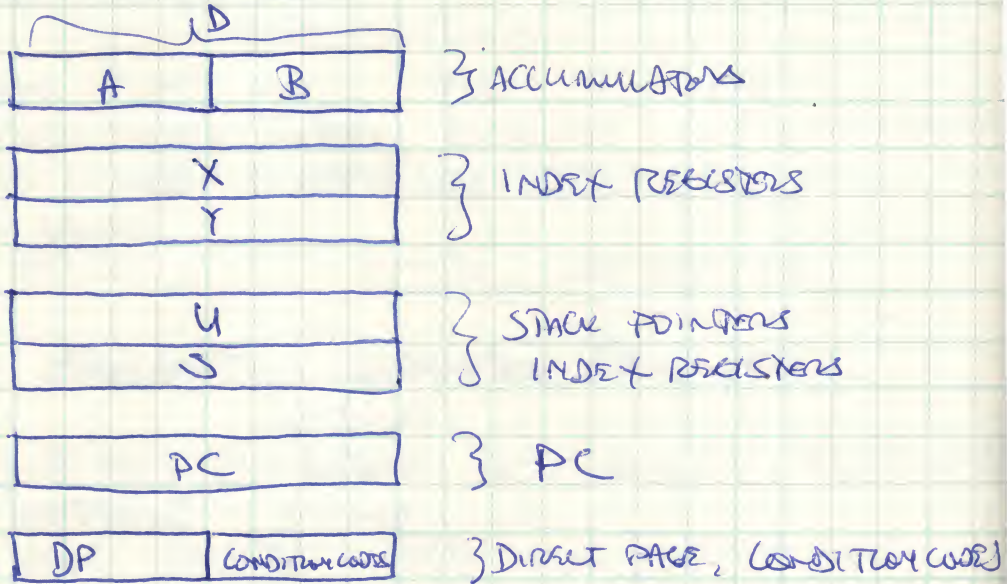 D
A B } ACCUMULATORS
X } INDEX REGISTERS
Y
U } STACK POINTERS
S INDEX REGISTERS
PC } PC
DP CONDITION CODES } DIRECT PAGE, CONDITION CODES